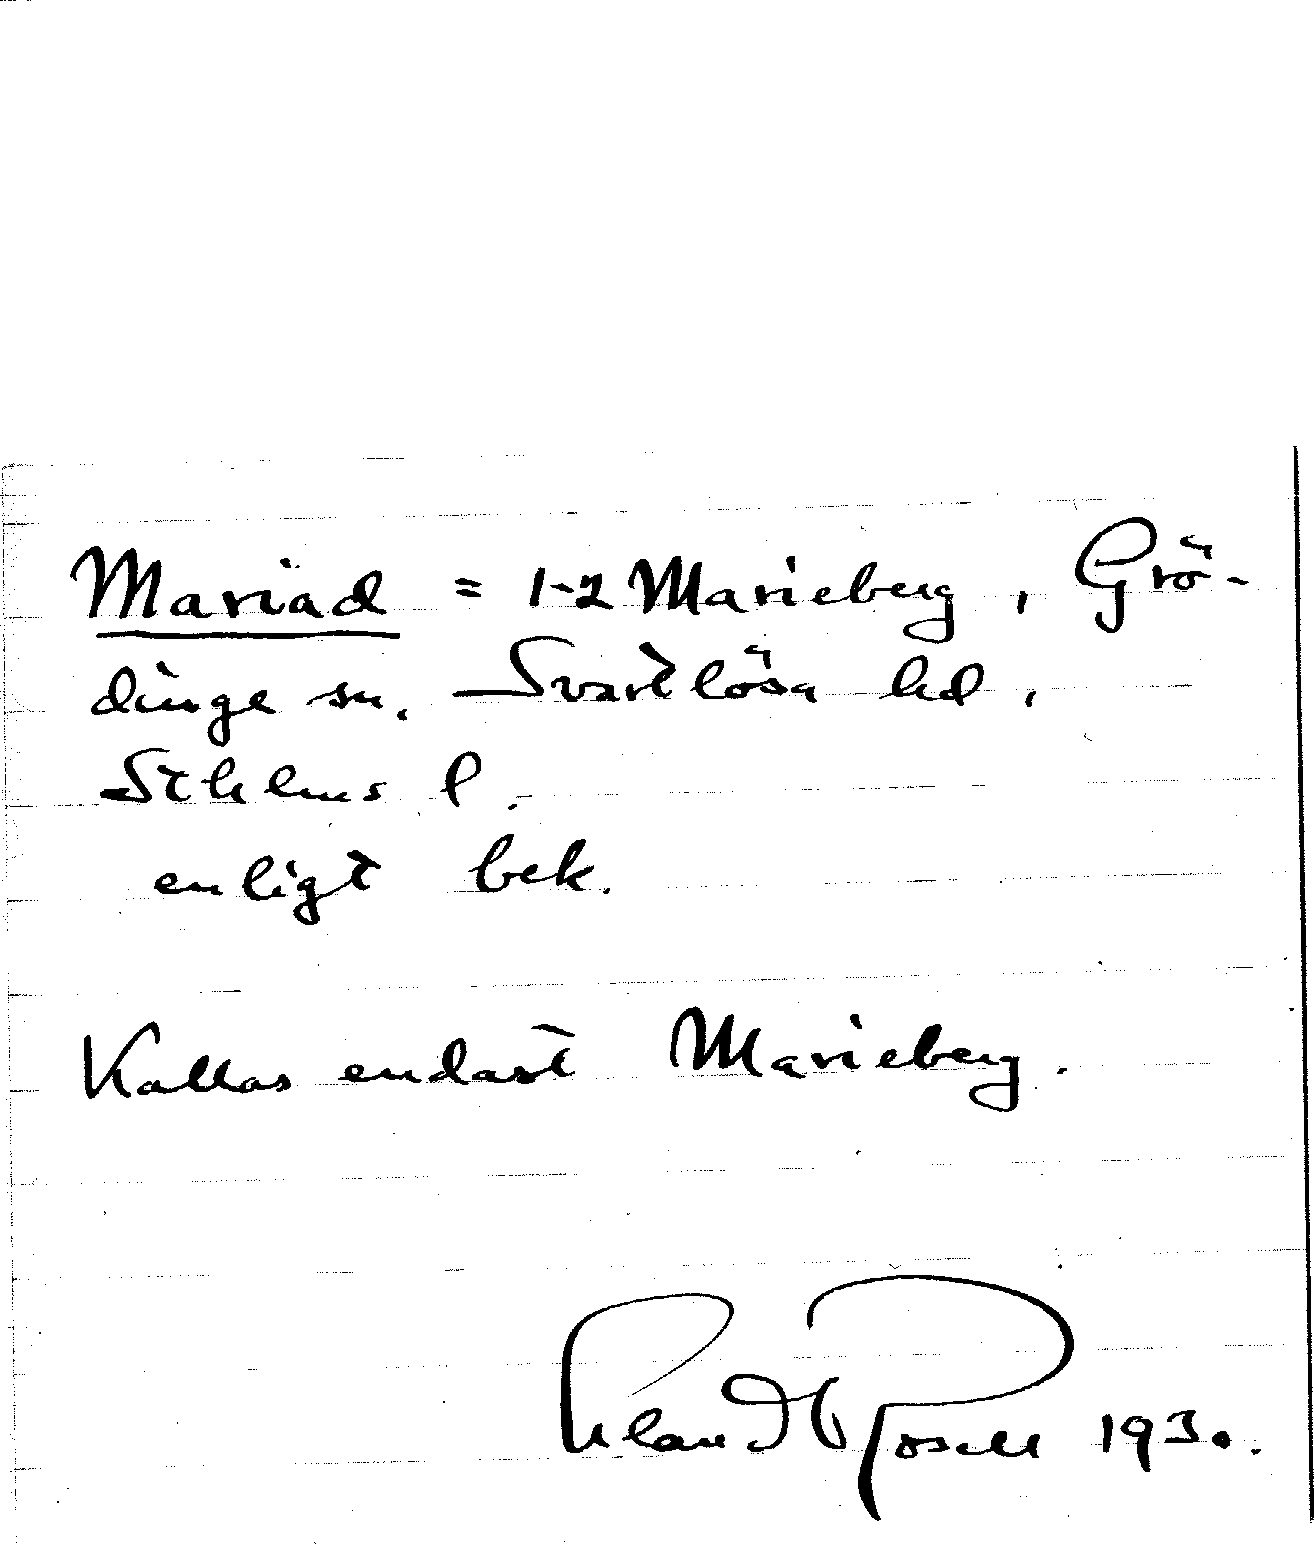 Mariäd = 1-2 Marieberg, Grö-
dinge sn. Svartlösa hd,
Sthlms l.
enligt bek.
Kallas endast Marieberg.
Rosell 1930.